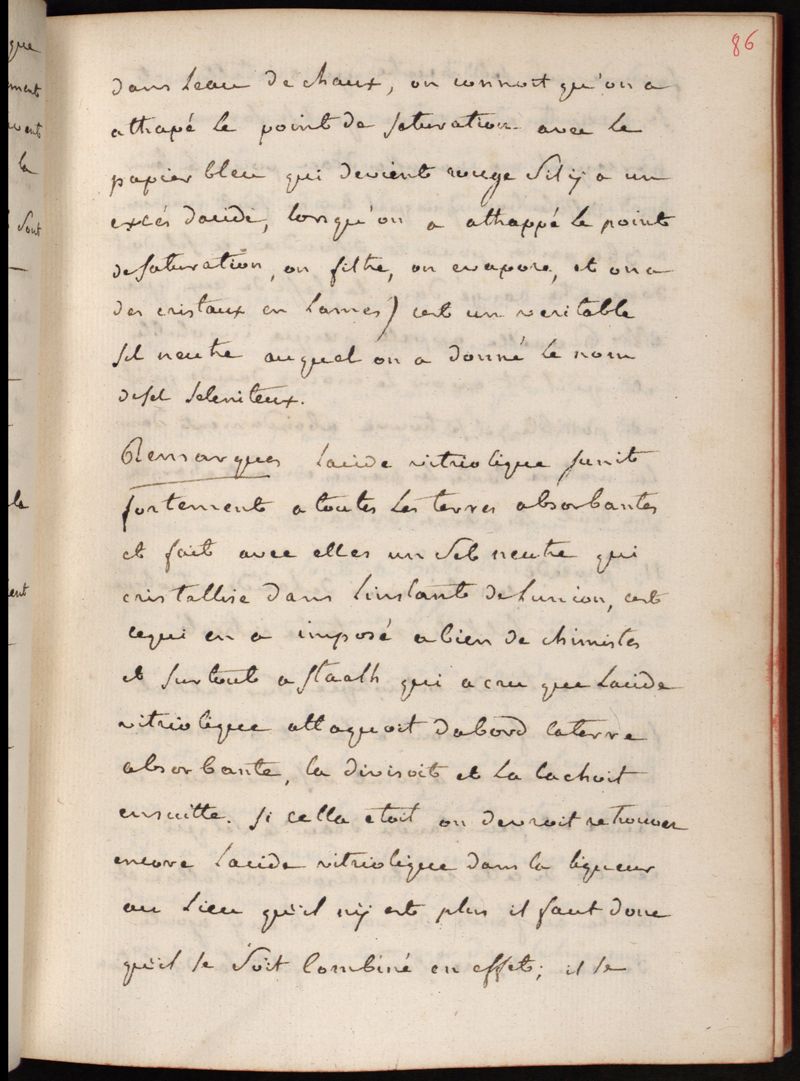 86
dans leau de chaux, on connoit qu'on a
attrapé le point de saturation avec le
papier bleu qui devient rouge sil ij a un
excés dacide, lorsqu'on a attrappé le point
de saturation, on filtre, on evapore, et on a
des cristaux en lames) cest un veritable
sel neutre auquel on a donné le nom
de sel seleniteux.
Remarques lacide vitriolique sunit
fortement a toutes les terres absorbantes
et fait avec elles un sel neutre qui
cristallise dans linstant de lunion, cest
cequi en a imposé a bien de chimistes
et surtout a staalh qui a cru que lacide
vitriolique attaquoit dabord laterre
absorbante, la divisoit et la lachoit
ensuitte. si cella etoit on devroit retrouver
encore lacide vitriolique dans la liqueur
au lieu qu'il nij est plus il faut donc
qu'il se soit combiné en effet; il se
que
ment
uvent
la
sont
la
ent